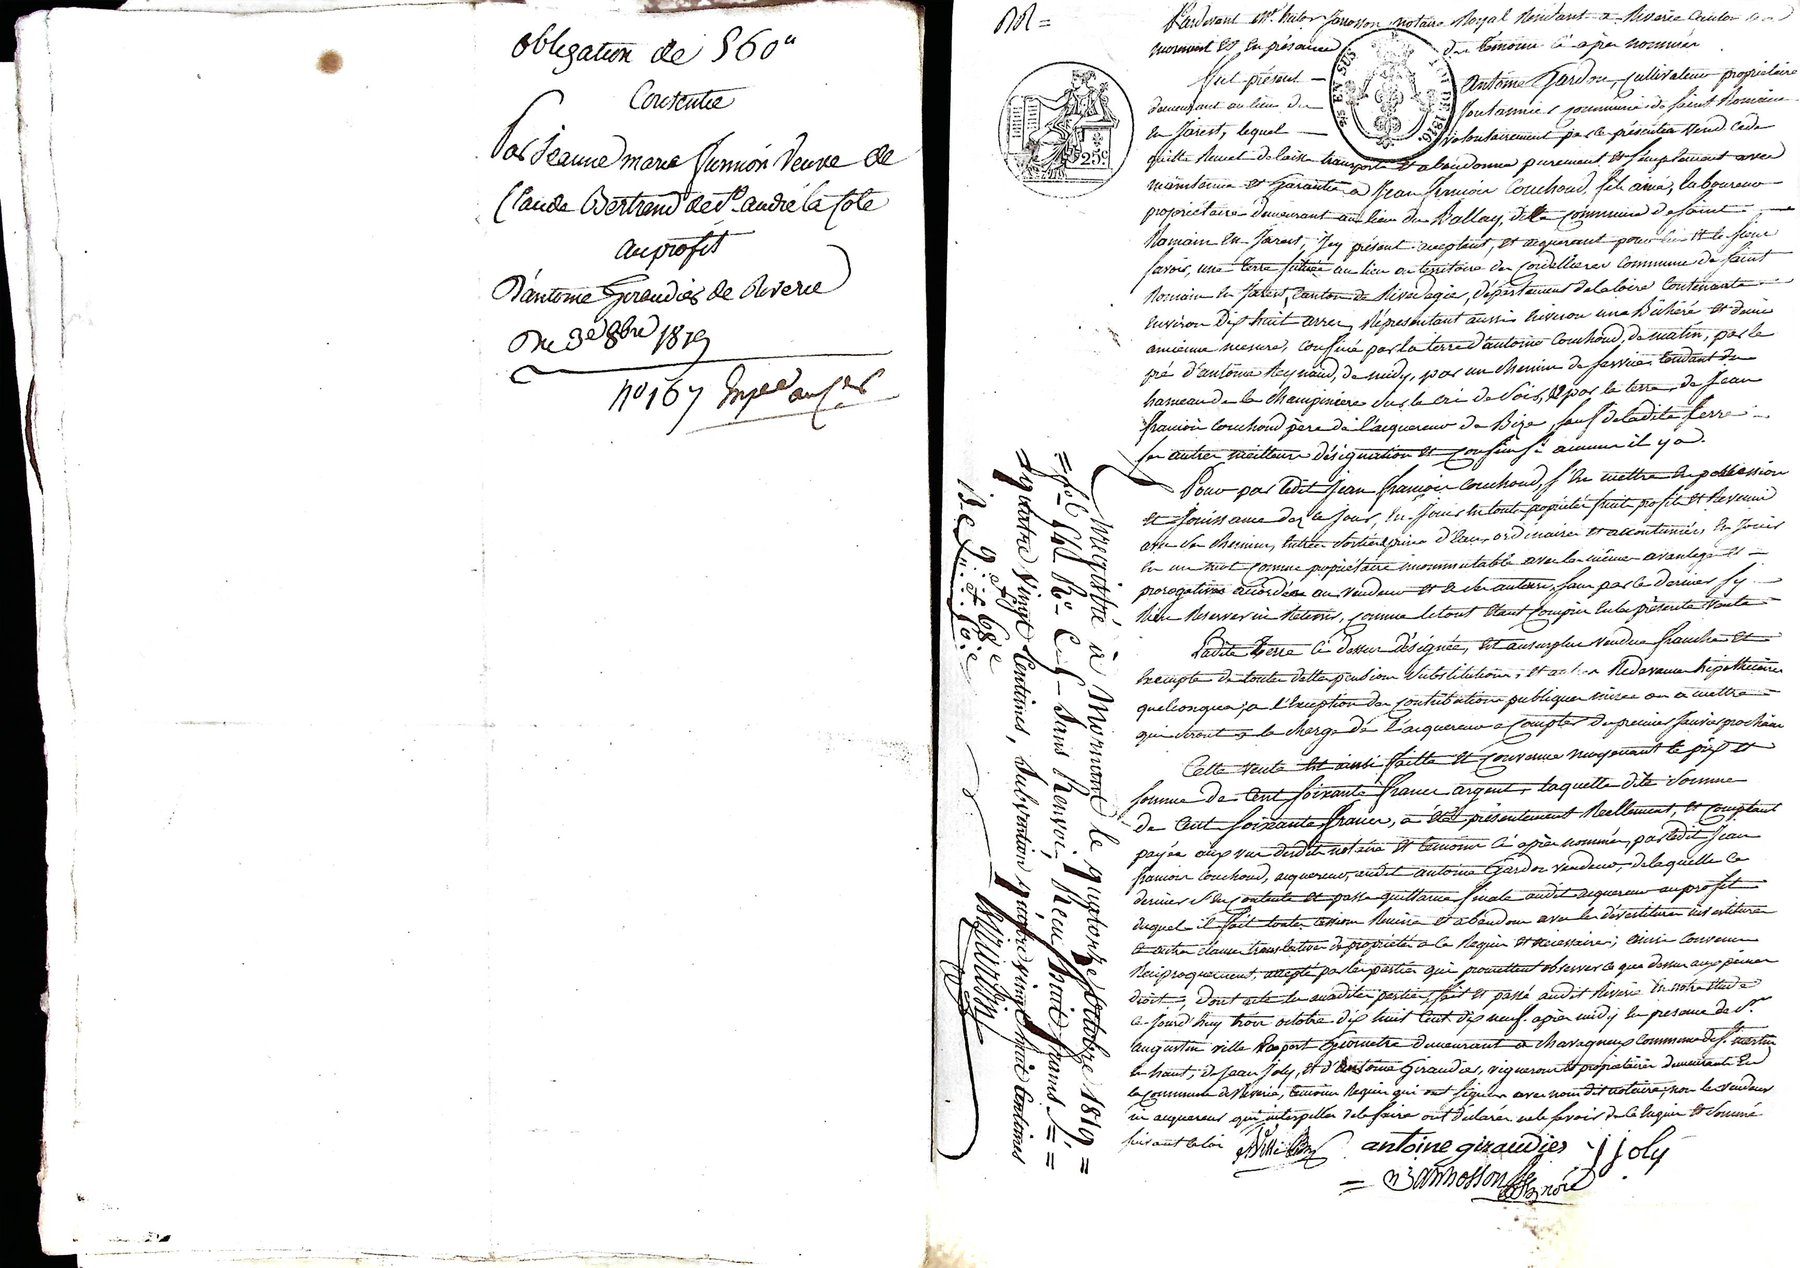 obligation de 560"
Consentie
Par Jeanne marie veuve de
Claude Bertrand de St. andré la Cote
au profit
D'antoine Giraudier de Riverie
Du 3e 8bre 1819
no 167
Pardevant Me. notaire Royal Résidant a Riverie Canton de
mornant et en présence des témoins ci après nommés
EN SUS LOI DE 1816.
25c
Fut présent Antoine Gardon, Cultivateur propriétaire
demeurant au lieu de commune de Saint Romain
en Jarest, lequel volontairement par ce présentes vend cede
quitte Remet delaisse transporte et abandonne purement et Simplement avec
maintenue et Garantie a Jean françois Couchoud fils ainé, laboureur
propriétaire demeurant au lieu du Ballay, dite commune de Saint
Romain en Jarest, icy présent acceptant et acquerant pour lui et les siens
savoir, une terre située au lieu ou territoire des Cordellieres commune de Saint
Romain en Jarest, Canton de Rivedegier, département de la loire Contenante
Environ Dix huit ares, Représentant aussi Environ une Bichéré et demie
ancienne mesure, Confinée par la terre d'antoine Couchoud, de matin, par le
pré d'antoine Reynaud, de midy, par un chemin de service tendant du
hameau de la Champinière sur le cri de Soir, et par la terre de Jean
françois Couchoud père de l'acquereur de Bize, sauf de ladite terre
ses autres meilleure désignation et Confins Si aucuns il y a.
Pour par ledit Jean françois Couchoud, s'En mettre En possession
et Jouissance dez ce Jour, En Jouir En toute propriété fruit profit et Revenu
avec ses chemins, Entrées Sorties prises d'Eaux ordinaires et accoutumées, En Jouir
En un mot Comme propriétaire incommutable avec les mêmes avantages et
prérogatives accordées au vendeur et a ses auteurs, sans par ce dernier s'y
Rien Reserver ni Retenir, comme le tout Etant Compris En la présente vente
Ladite Terre ci dessus désignée, Est au surplus vendue franche et
Exempte de toutes dettes pensions Substitutions, et autres Redevances hipothécaires
quelconques, a l'Exception des Contributions publiques mises ou a mettre
qui seront a la charge de l'acquereur a Compter du premier Janvier prochain
Cette vente Est ainsi faitte et Convenue moyenant le prix et
somme de Cent Soixante francs argent, laquelle dite Somme
de Cent Soixante francs, a été présentement Réellement, et comptant
payée aux vus desdits notaire et temoins ci après nommés, par ledit Jean
françois Couchoud, acquereur, audit antoine Gardon vendeur, de laquelle ce
dernier s'En Contente et passe quittance finale audit acquereur au profit
duquel il fait toutes cessions Remise et abandon avec les dévestitures investitures
et autres clauses translatives de propriété a ce Requis et nécessaires; ainsi Convenu
Réciproquement, accepté par les parties qui promettent observer ce que dessus aux peines
de droit, Dont acte susdites parties, fait et passé audit Riverie En notre étude
ce Jourd'huy trois octobre dix huit Cent Dix neuf après midy En presence de Sr.
augustin ville Géomètre demeurant a Chavagneux commune de St. martin
En haut, de Jean Joly, et d'Antoine Giraudier, vignerons et propriétaires demeurants En
la Commune de Riverie, temoins Requis qui ont signés avec nous dit notaire, non le vendeur
ni acquereur qui interpellés de le faire ont déclarés ne le savoir de ce Enquis et Sommé
suivant la loi
antoine giraudier j joly
Enregistré à Mornant le quatorze octobre 1819 =
= fo. 6 sans Renvoi. Reçu huit francs =
= quatre Vingt Centimes, Subvention quatre vingt huit Centimes
9. f 68 c